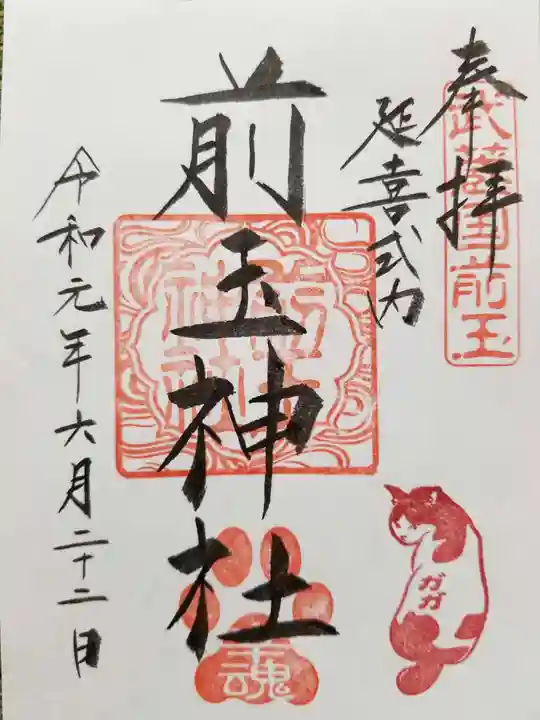 奉拝
武蔵国前玉
延喜式内
前玉神社
前玉神社
令和元年六月二十二日
ガガ
魂